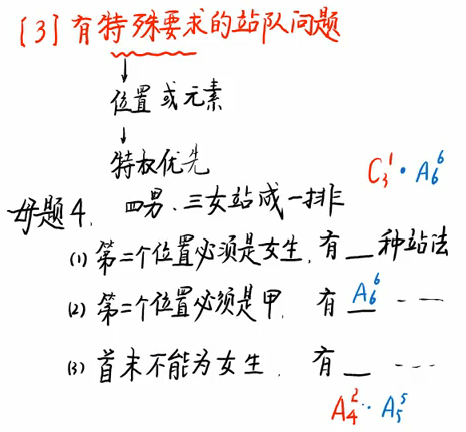 [3] 有特殊要求的站队问题
↓
位置或元素
↓
特权优先
C₃¹·A₆⁶
母题4. 四男、三女站成一排
(1) 第二个位置必须是女生,有__种站法
(2) 第二个位置必须是甲. 有 A₆⁶ - —
(3) 首末不能为女生. 有__ ----
A₄²·A₅⁵